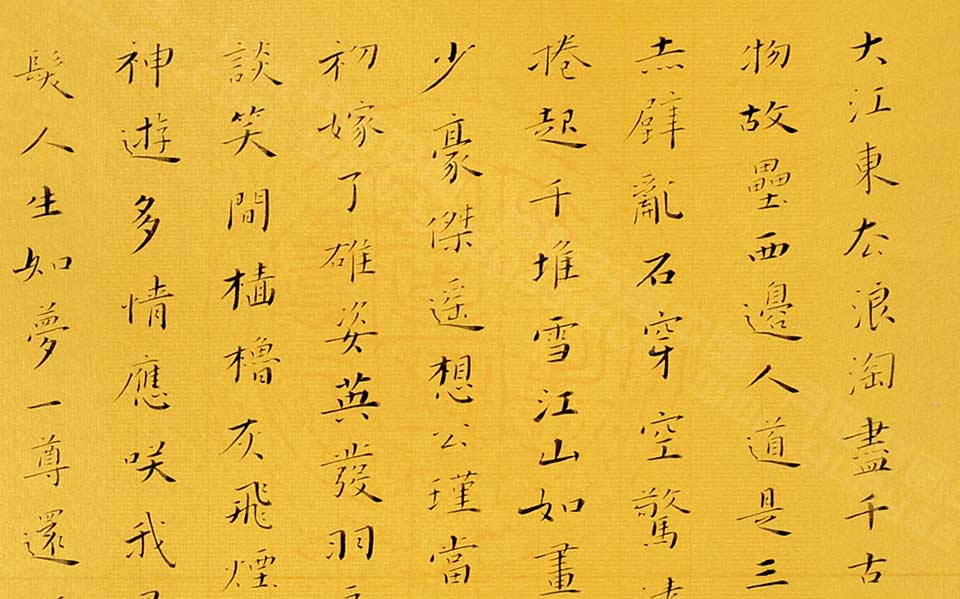 大江東去浪淘盡千古
物故壘西邊人道是三
赤壁亂石穿空驚
捲起千堆雪江山如畫
少豪傑遙想公瑾當
初嫁了雄姿英發羽
談笑間檣櫓灰飛煙
神遊多情應咲我
髮人生如夢一尊還